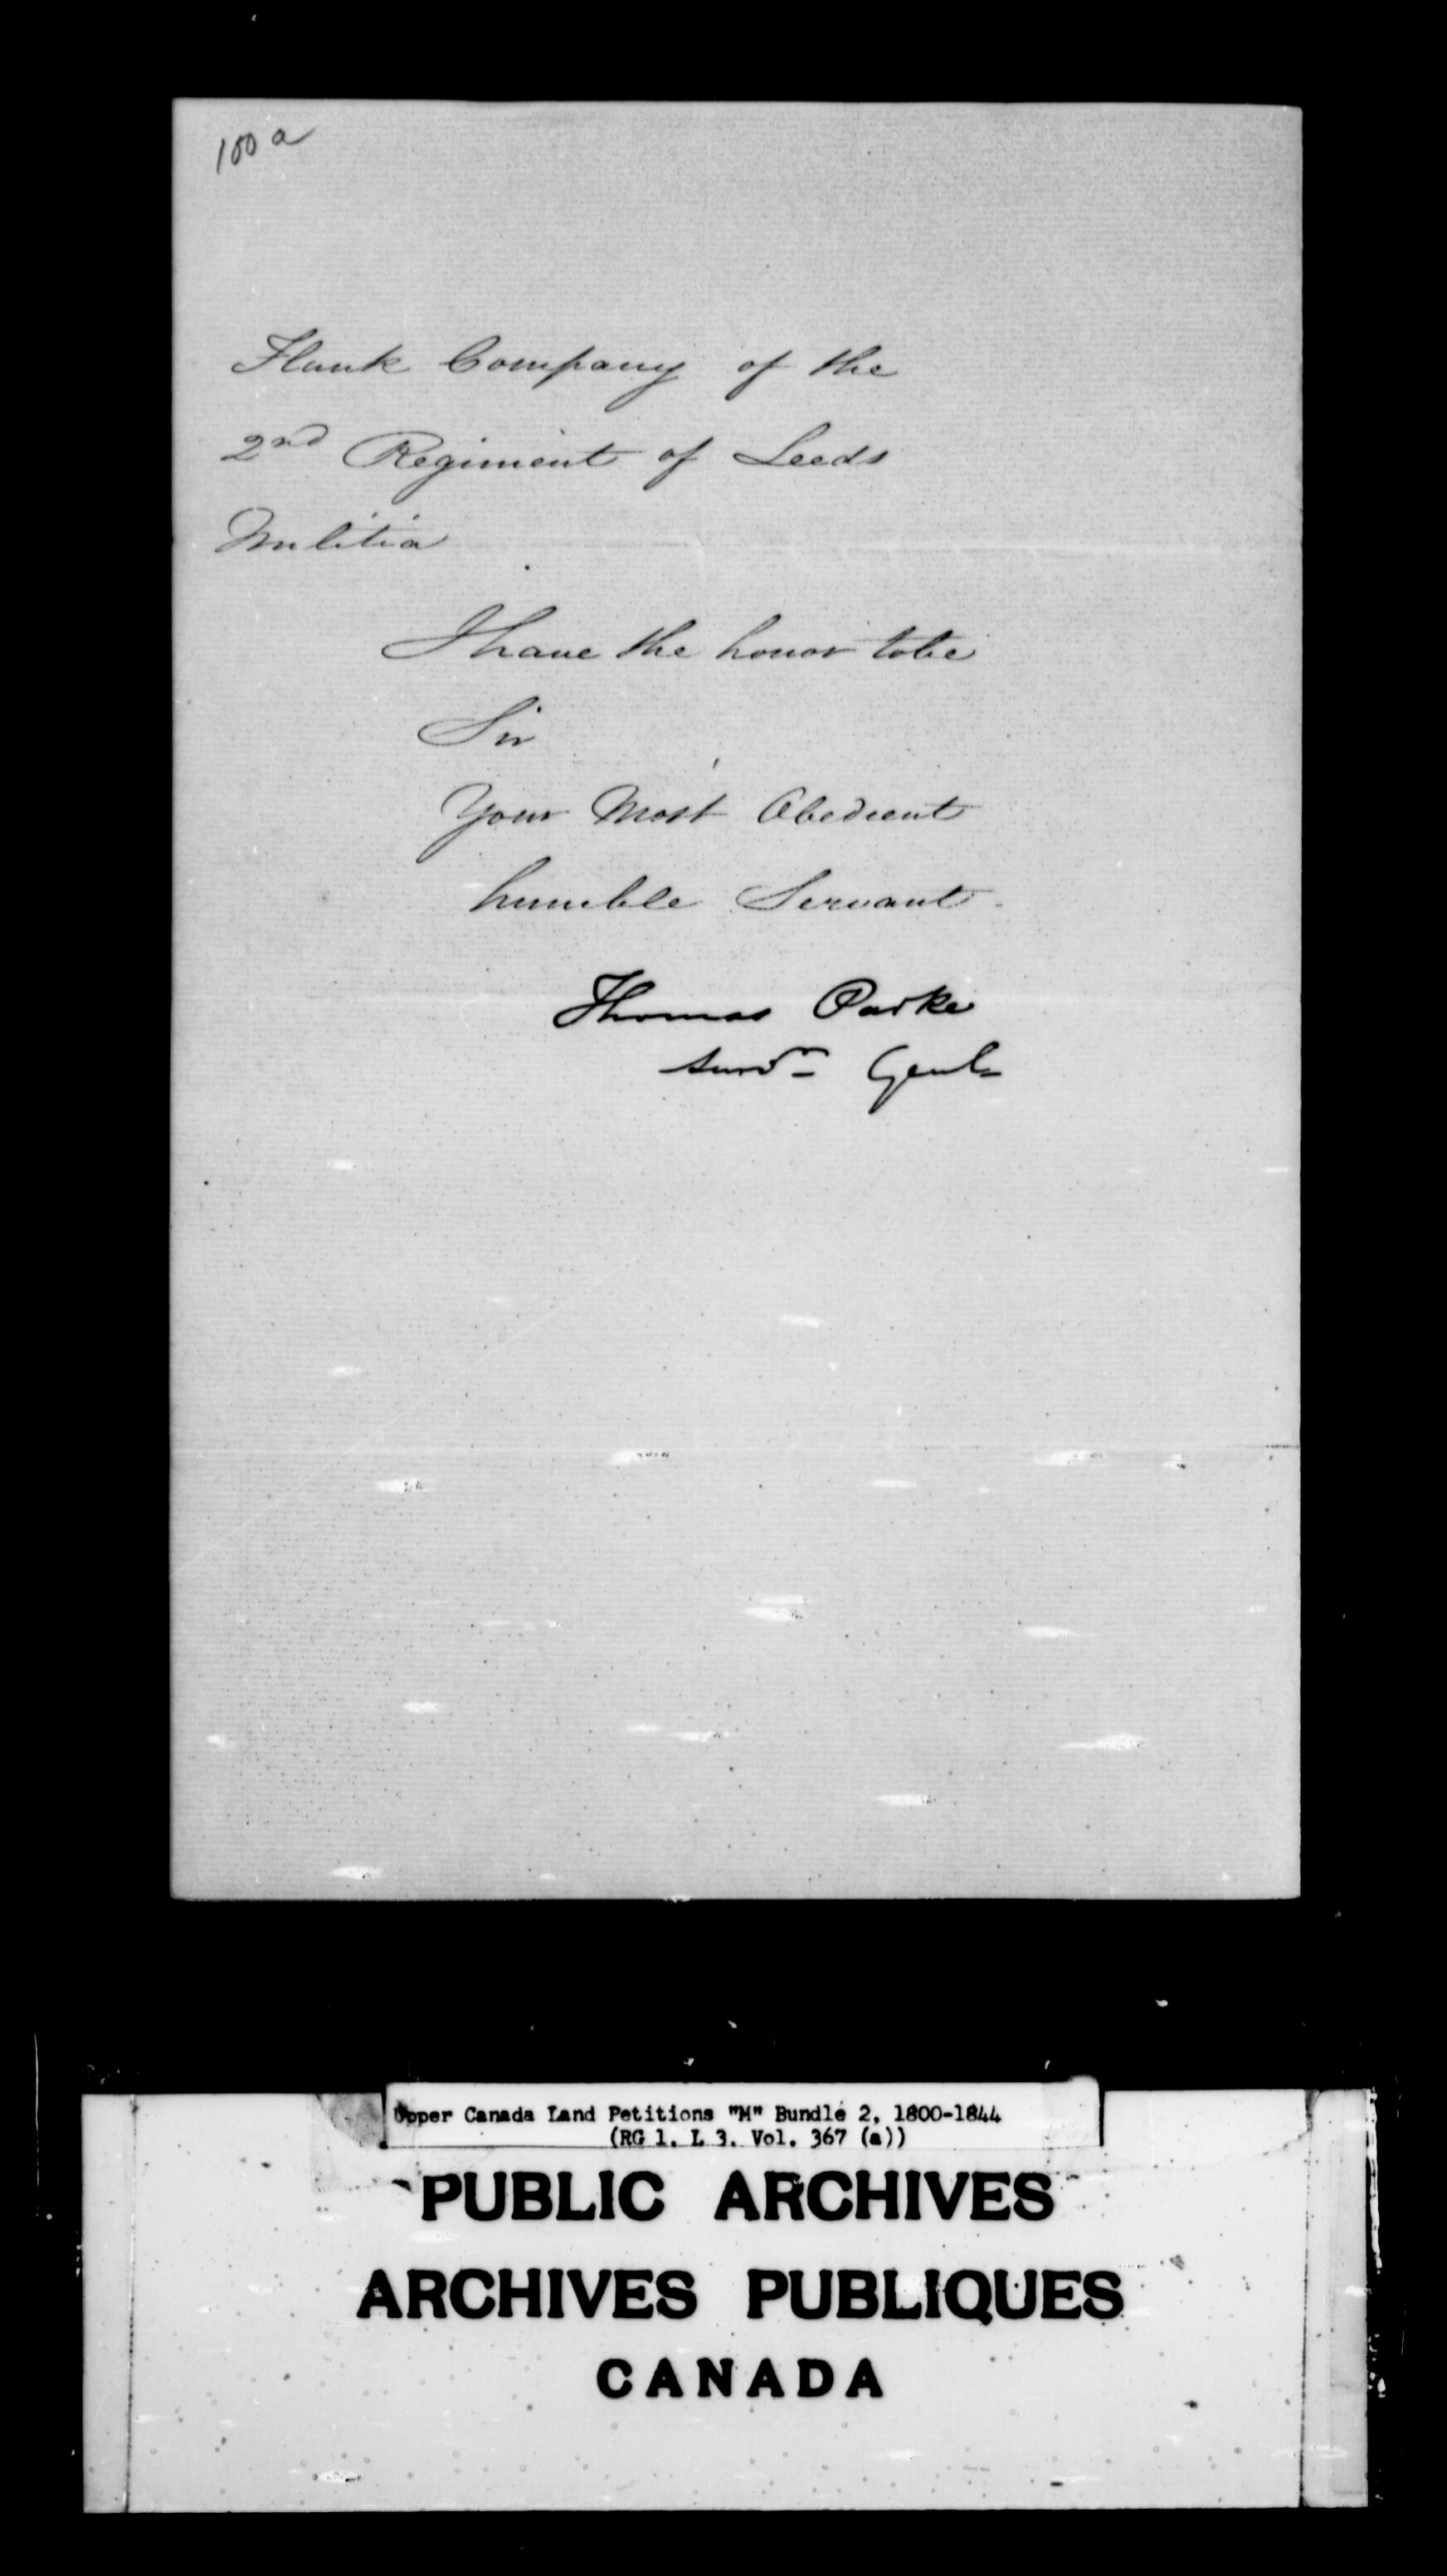 100 a
Flank Company of the
2nd Regiment of Leeds
Militia
I have the honor to be
Sir
Your Most Obedient
humble Servant
Thomas Parke
Survr Genl
Upper Canada Land Petitions "M" Bundle 2, 1800-1844
(RG 1, L 3, Vol. 367 (a))
PUBLIC ARCHIVES
ARCHIVES PUBLIQUES
CANADA